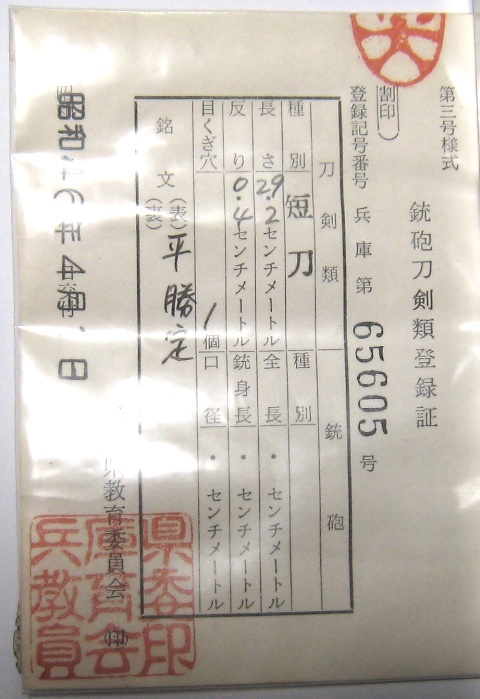 第三号様式
銃砲刀剣類登録証
(割印)
登録記号番号 兵庫第 65605 号
刀剣類 銃砲
種別 短刀 種別
長さ 29.2センチメートル 全長 ・センチメートル
反り 0.4センチメートル 銃身長 ・センチメートル
目くぎ穴 1個 口径 ・センチメートル
銘文 (表) 平勝定
(裏)
昭和 年4月 日
県教育委員会 ㊞
兵庫県教育委員会印